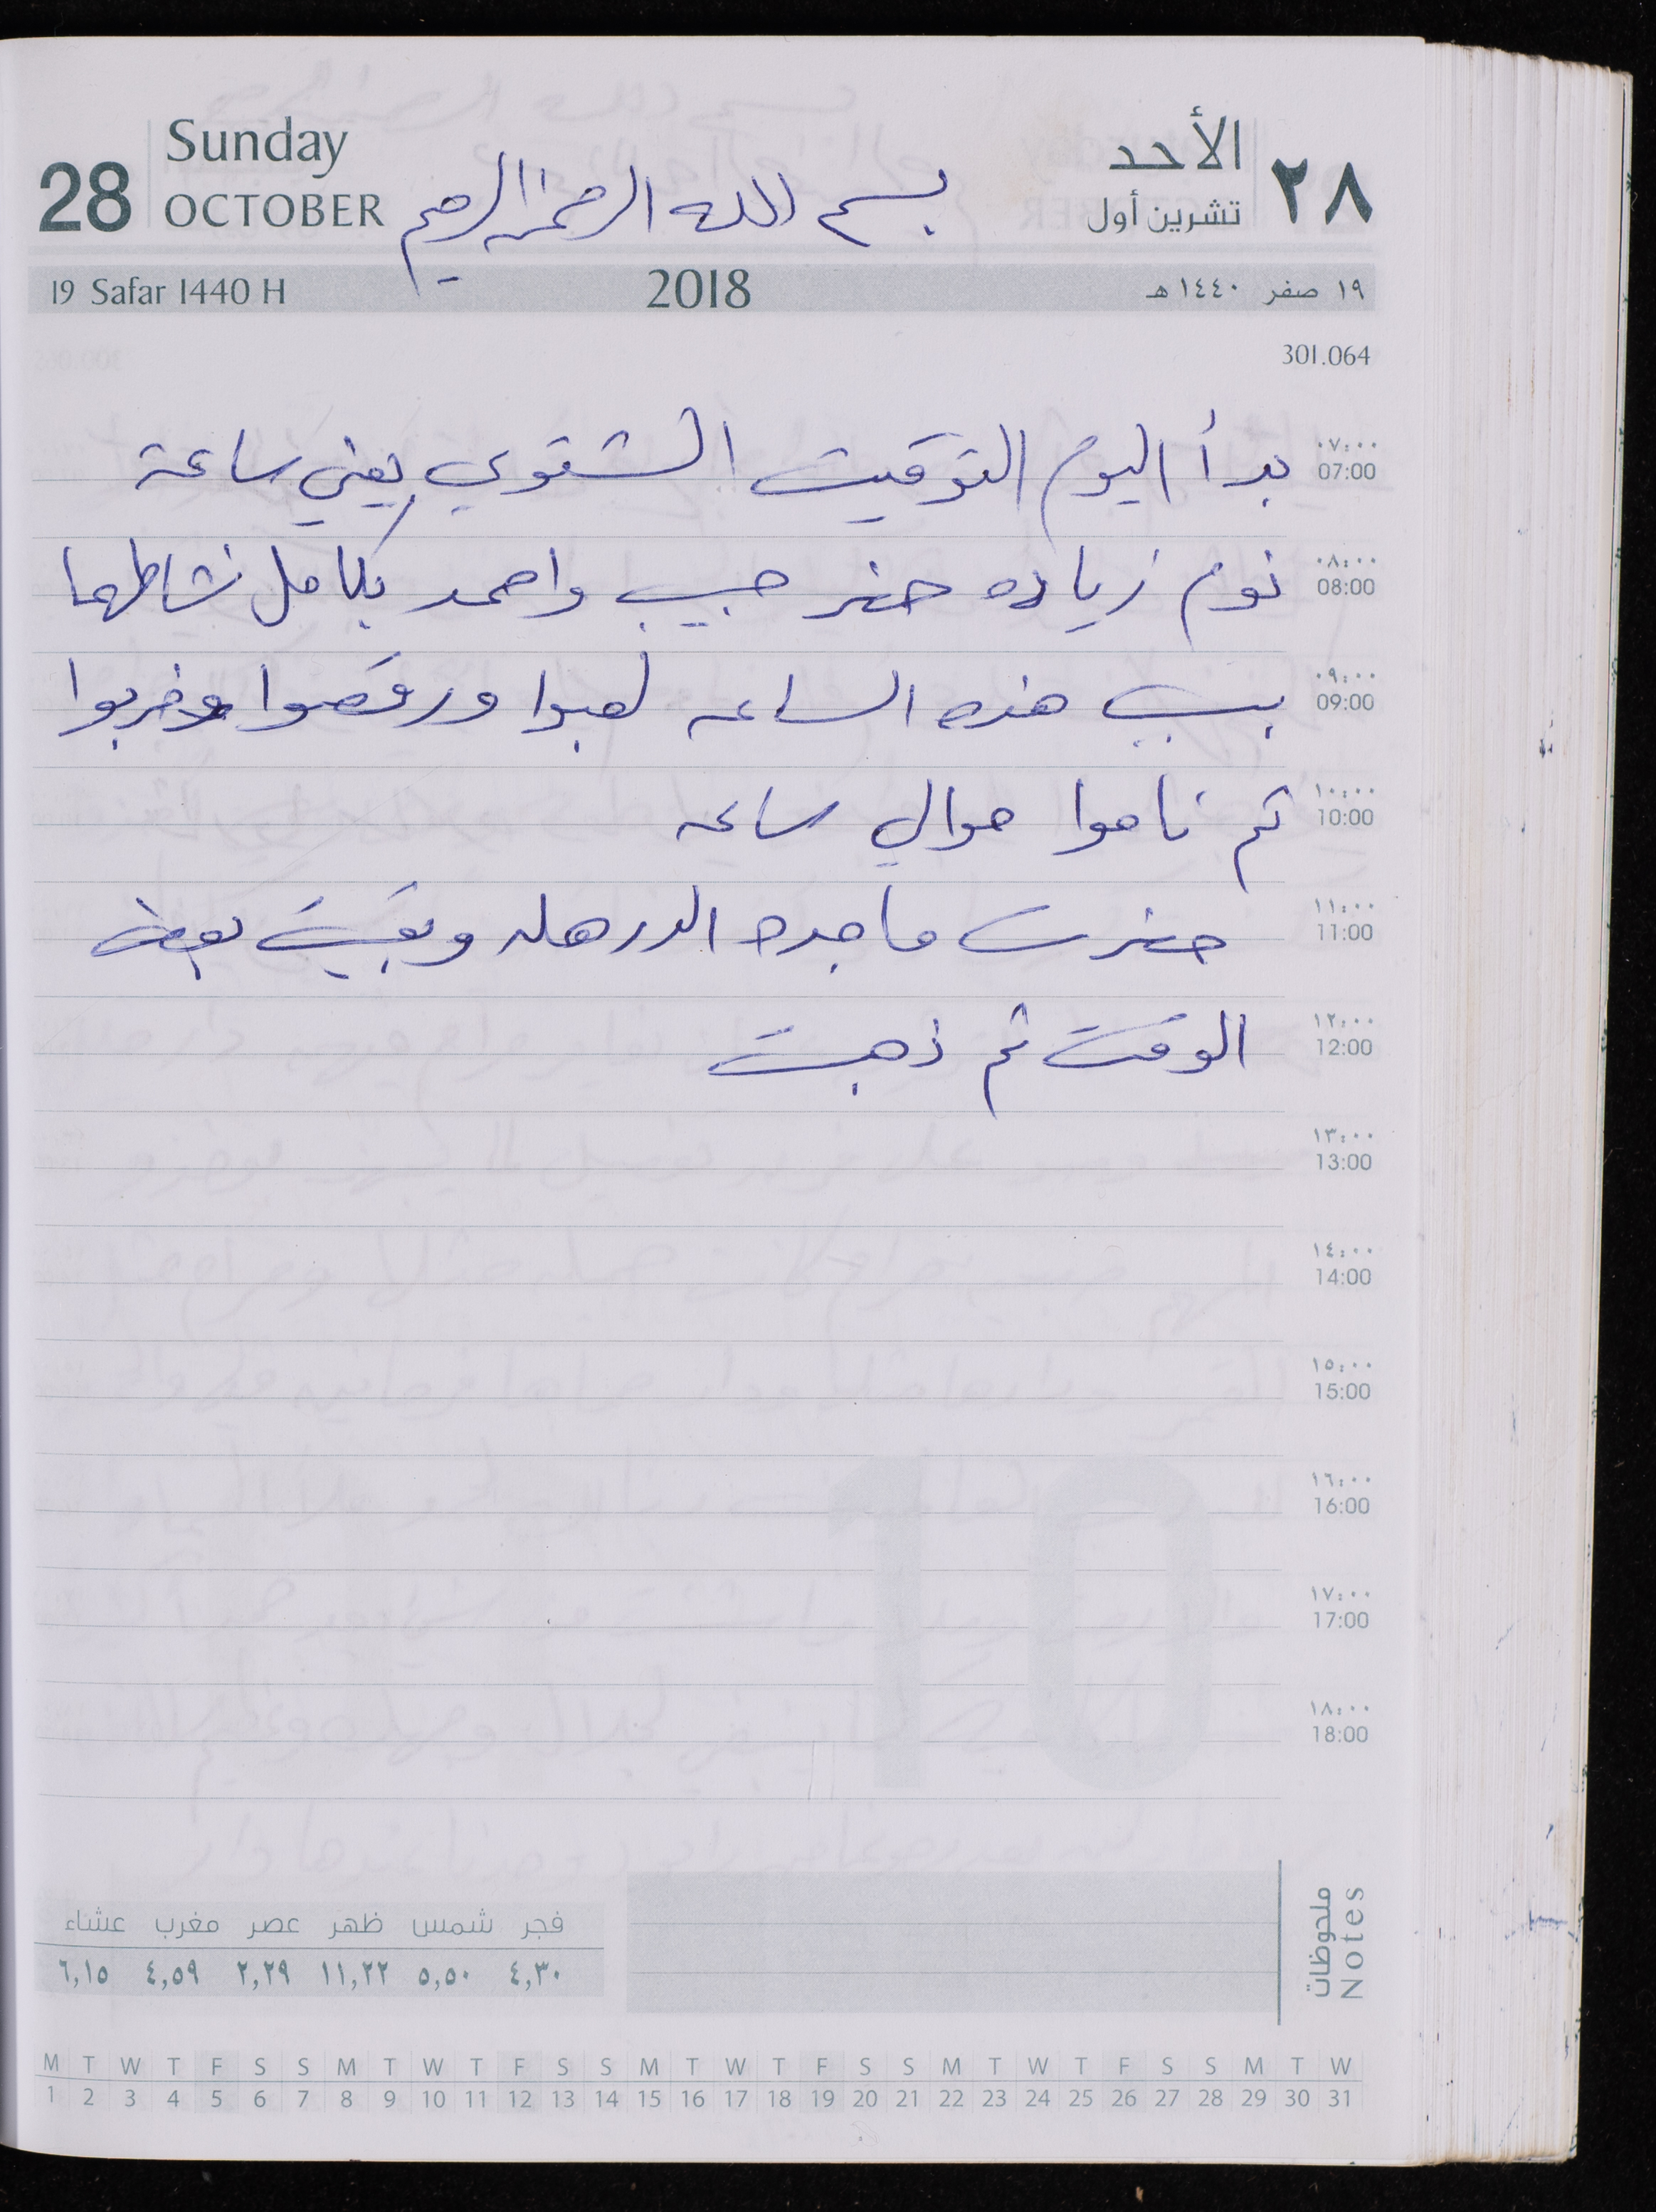 28 Sunday OCTOBER
الأحد ٢٨
تشرين أول
بسم الله الرحمن الرحيم
19 Safar 1440 H 2018 ١٩ صفر ١٤٤٠ هـ
301.064
٠٧:٠٠ 07:00 بدأ اليوم التوقيت الشتوي يعني ساعة
٠٨:٠٠ 08:00 نوم زياده حضر حبيب واحمد بكامل نشاطهما
٠٩:٠٠ 09:00 بسبب هذه الساعه لعبوا ورقصوا وخربوا
١٠:٠٠ 10:00 ثم ناموا حوالي ساعه
١١:٠٠ 11:00 حضرت ماجده الدرهلي وبقيت بعض
١٢:٠٠ 12:00 الوقت ثم ذهبت
١٣:٠٠ 13:00
١٤:٠٠ 14:00
١٥:٠٠ 15:00
١٦:٠٠ 16:00
١٧:٠٠ 17:00
١٨:٠٠ 18:00
10
ملحوظات
Notes
فجر شمس ظهر عصر مغرب عشاء
٤,٣٠ ٥,٥٠ ١١,٢٢ ٢,٢٩ ٤,٥٩ ٦,١٥
M T W T F S S M T W T F S S M T W T F S S M T W T F S S M T W
1 2 3 4 5 6 7 8 9 10 11 12 13 14 15 16 17 18 19 20 21 22 23 24 25 26 27 28 29 30 31